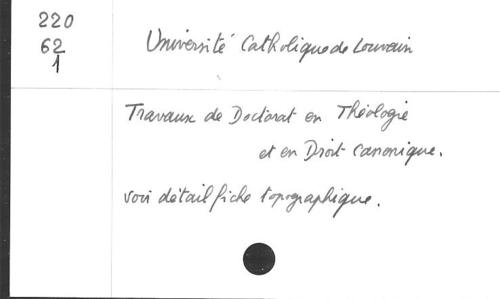 220
62
1
Université Catholique de Louvain
Travaux de Doctorat en Théologie
et en Droit Canonique.
voir détail fiche topographique.